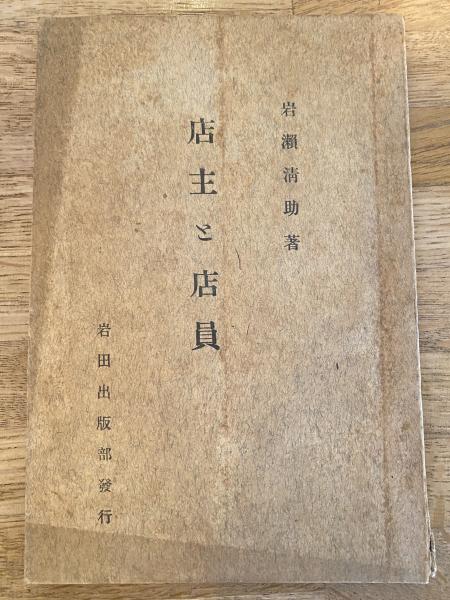 岩瀨淸助著
店主と店員
岩田出版部發行